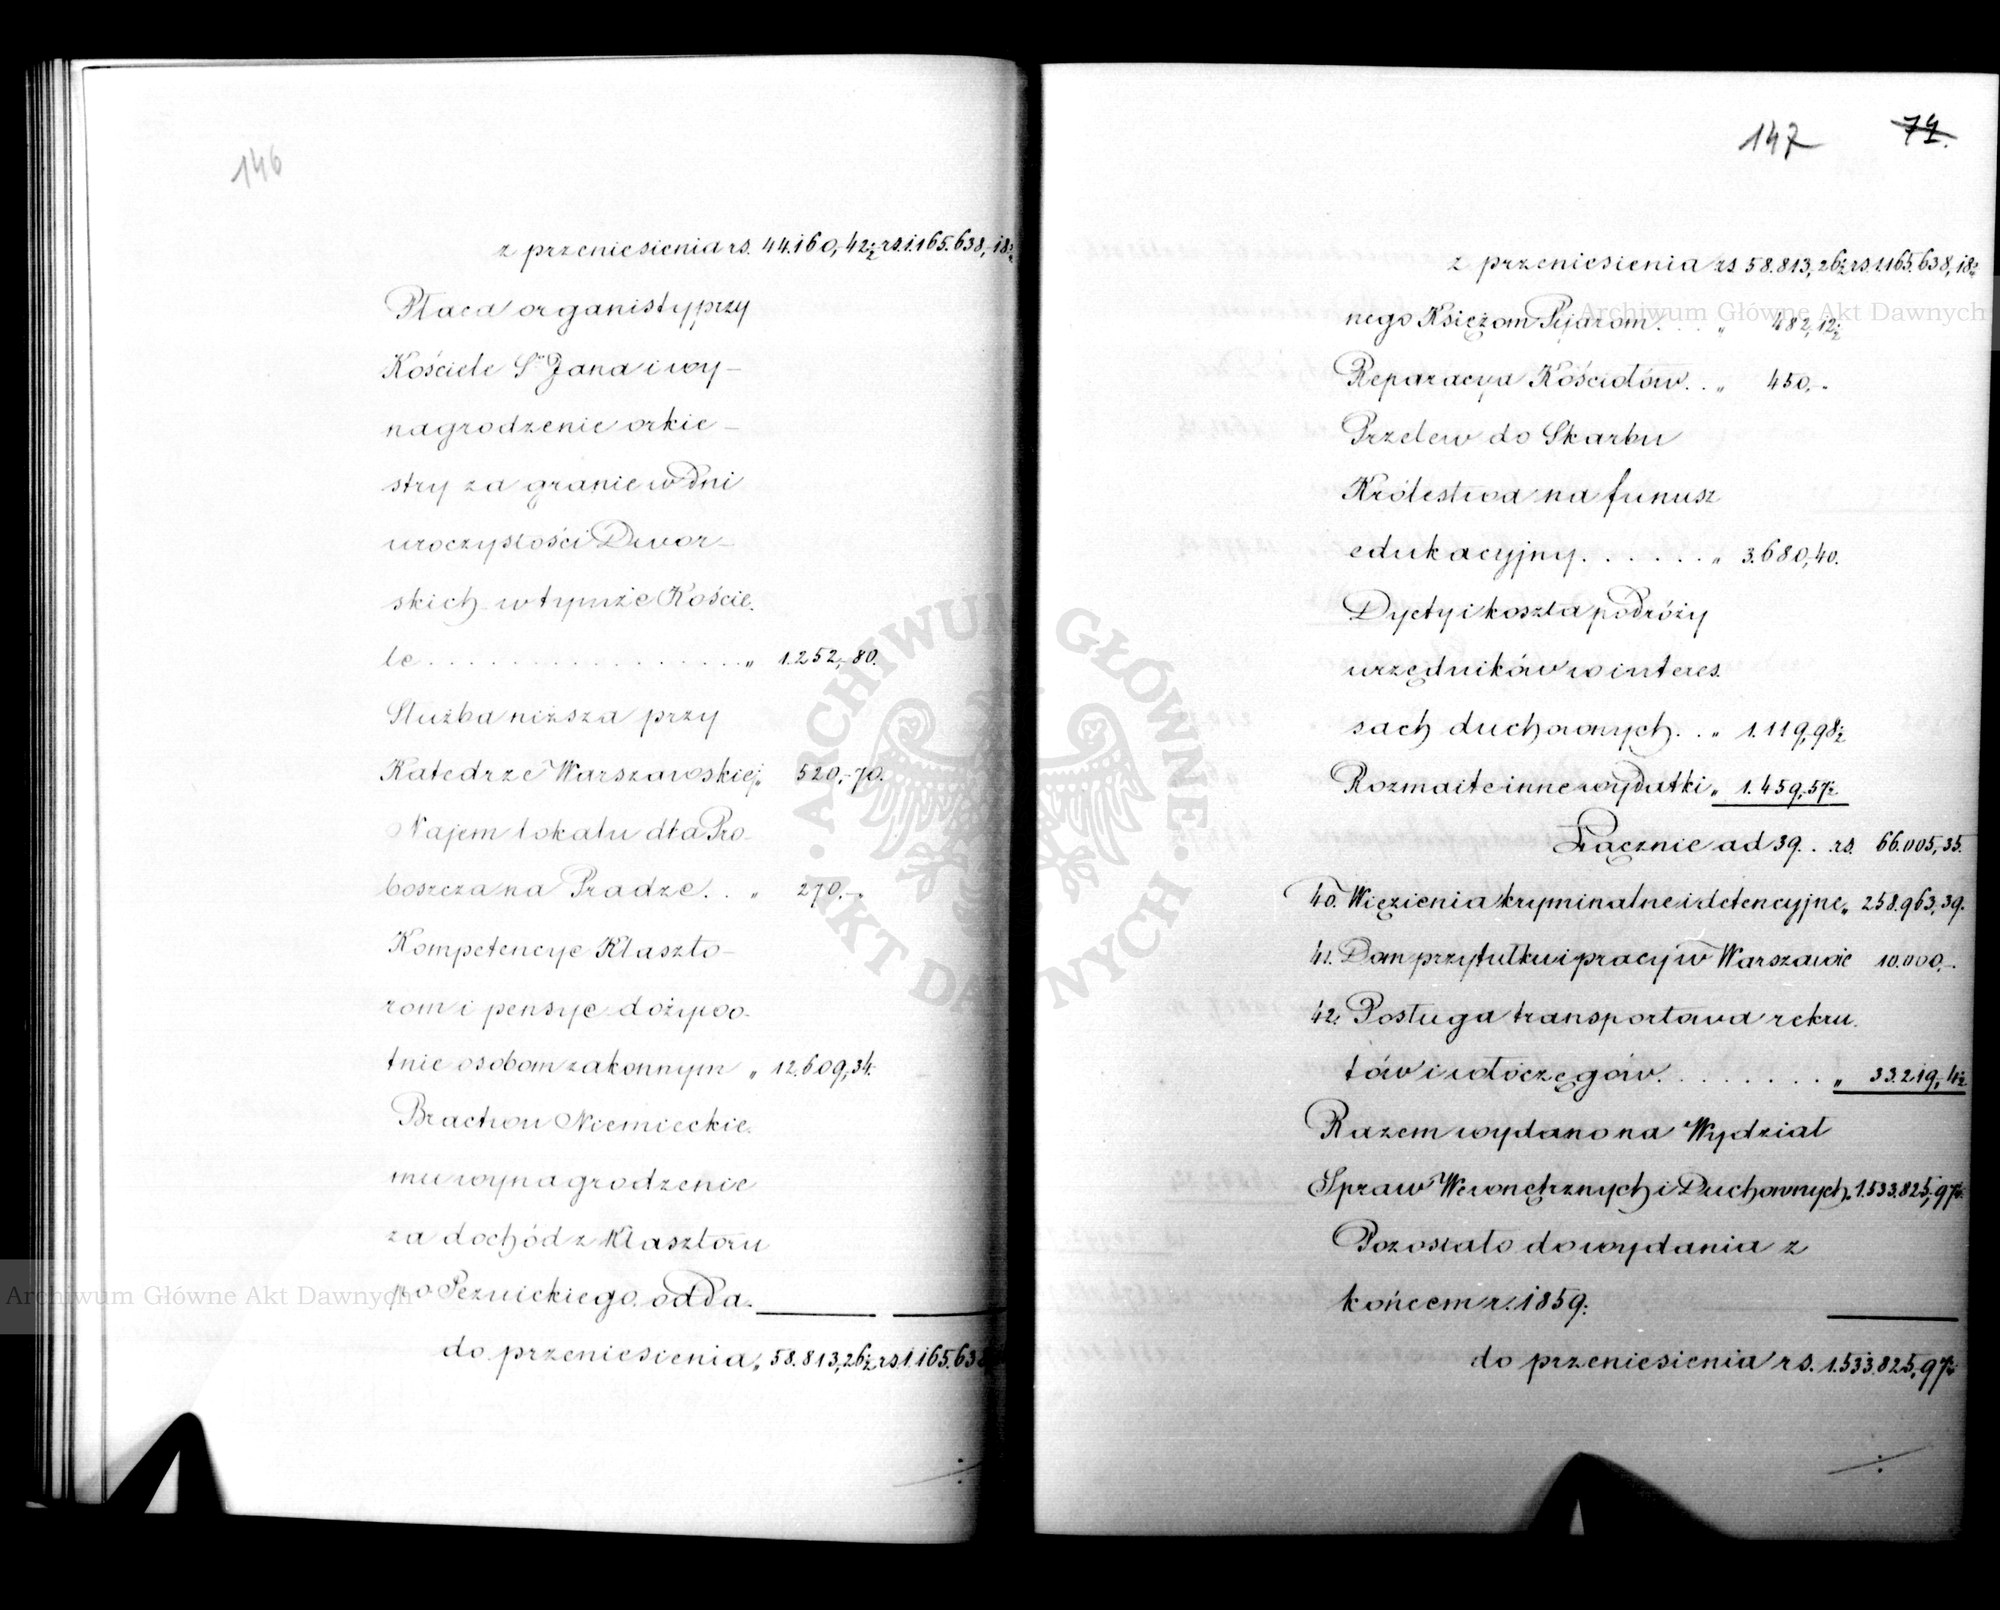 146
z przeniesienia rs. 44.160,-42½ rs. 1.165.638,-18½
Płaca organisty przy
Kościele Sgo Jana i wy-
nagrodzenie orkie-
stry za granie w dni
uroczystości Dwor-
skich w tymże Koście-
le . . . . . . . . . . . . . . . . . „ 1.252,-80.
Służba niższa przy
Katedrze Warszawskiej „ 520,-70.
Najem lokalu dla Pro-
boszcza na Pradze . . „ 270,-.
Kompetencye Klaszto-
rom i pensye dożywo-
tnie osobom zakonnym „ 12.609,34.
Bractwu Niemieckie-
mu wynagrodzenie
za dochód z Klasztoru
po odda-
do przeniesienia „ 58.813,26½ rs. 1.165.638
147 74.
z przeniesienia rs. 58.813,26½ rs. 1.165.638,18½
nego Księżom Pijarom . . . „ 482,12½
Reparacya Kościołów . . „ 450,-.
Przelew do Skarbu
Królestwa na funusz
edukacyjny . . . . . . „ 3.680,40.
Dyety i koszta podróży
urzędników w interes-
sach duchownych . . „ 1.119,98½
Rozmaite inne wydatki „ 1.459,57½
Łącznie ad 39. . rs. 66.005,35.
40. Więzienia kryminalne i detencyjne „ 258.963,39.
41. Dom przytułku i pracy w Warszawie 10.000,-.
42. Posługa transportowa rekru-
tów i włóczęgów . . . . . . . „ 33.219,-4½
Razem wydano na Wydział
Spraw Wewnętrznych i Duchownych „ 1.533.825,97½
Pozostało do wydania z
końcem r. 1859.
do przeniesienia rs. 1.533.825,97½
Archiwum Główne Akt Dawnych
Archiwum Główne Akt Dawnych
ARCHIWUM GŁÓWNE AKT DAWNYCH